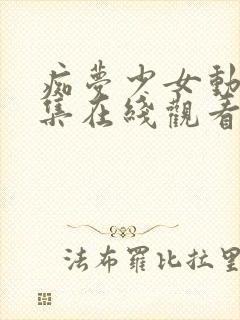 痴夢少女動
集在綫觀看
法布羅比拉里